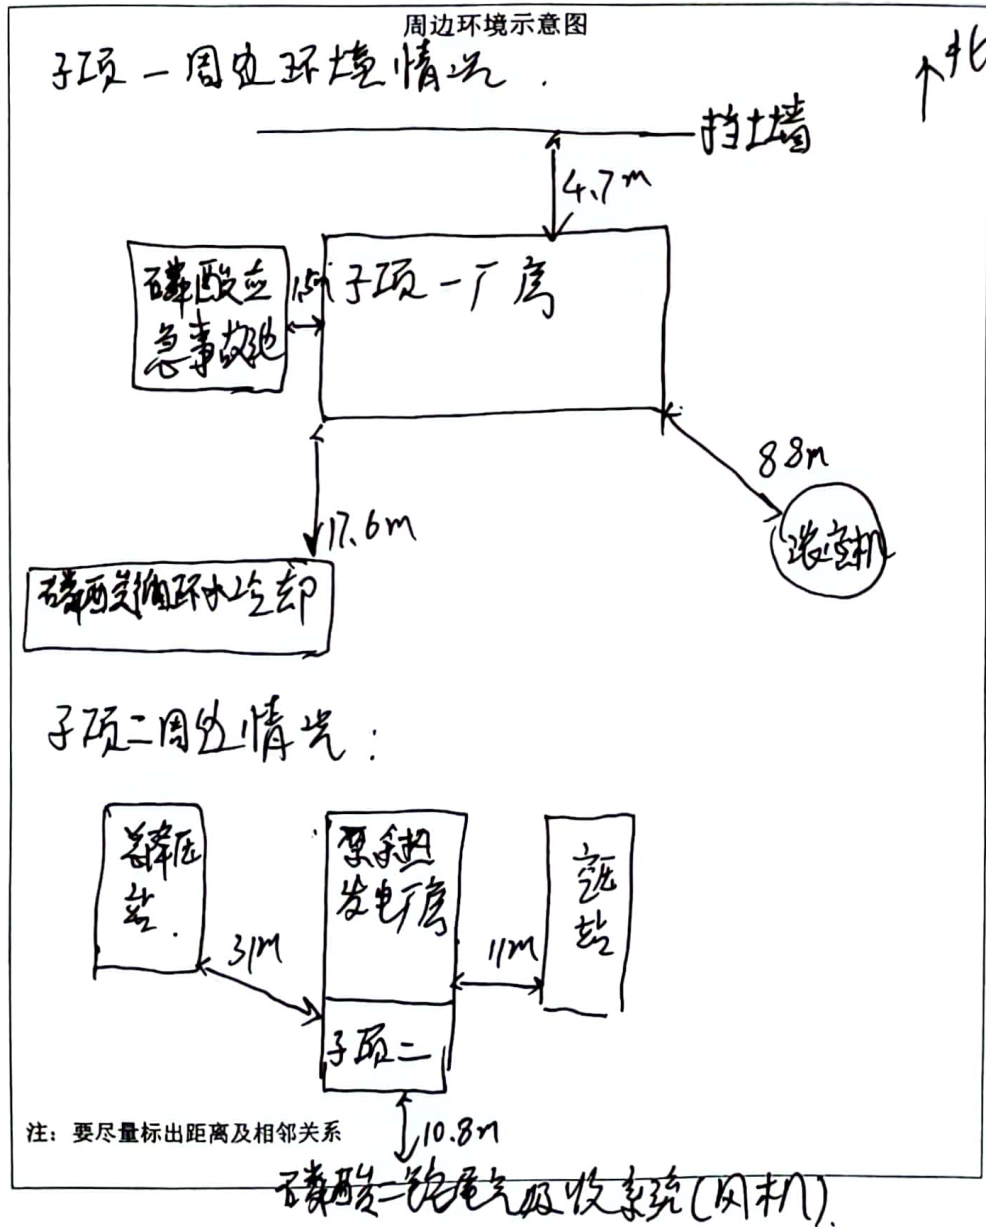 周边环境示意图
子项一周边环境情况.
北
挡土墙
4.7m
磷酸应
急事故池
1.5m
子项一厂房
88m
浓密机
17.6m
磷酸循环水冷却
子项二周边情况:
总降压
站.
31m
原余热
发电厂房
11m
空压
站
子项二
注:要尽量标出距离及相邻关系
10.8m
磷酸二铵尾气吸收系统(风机).